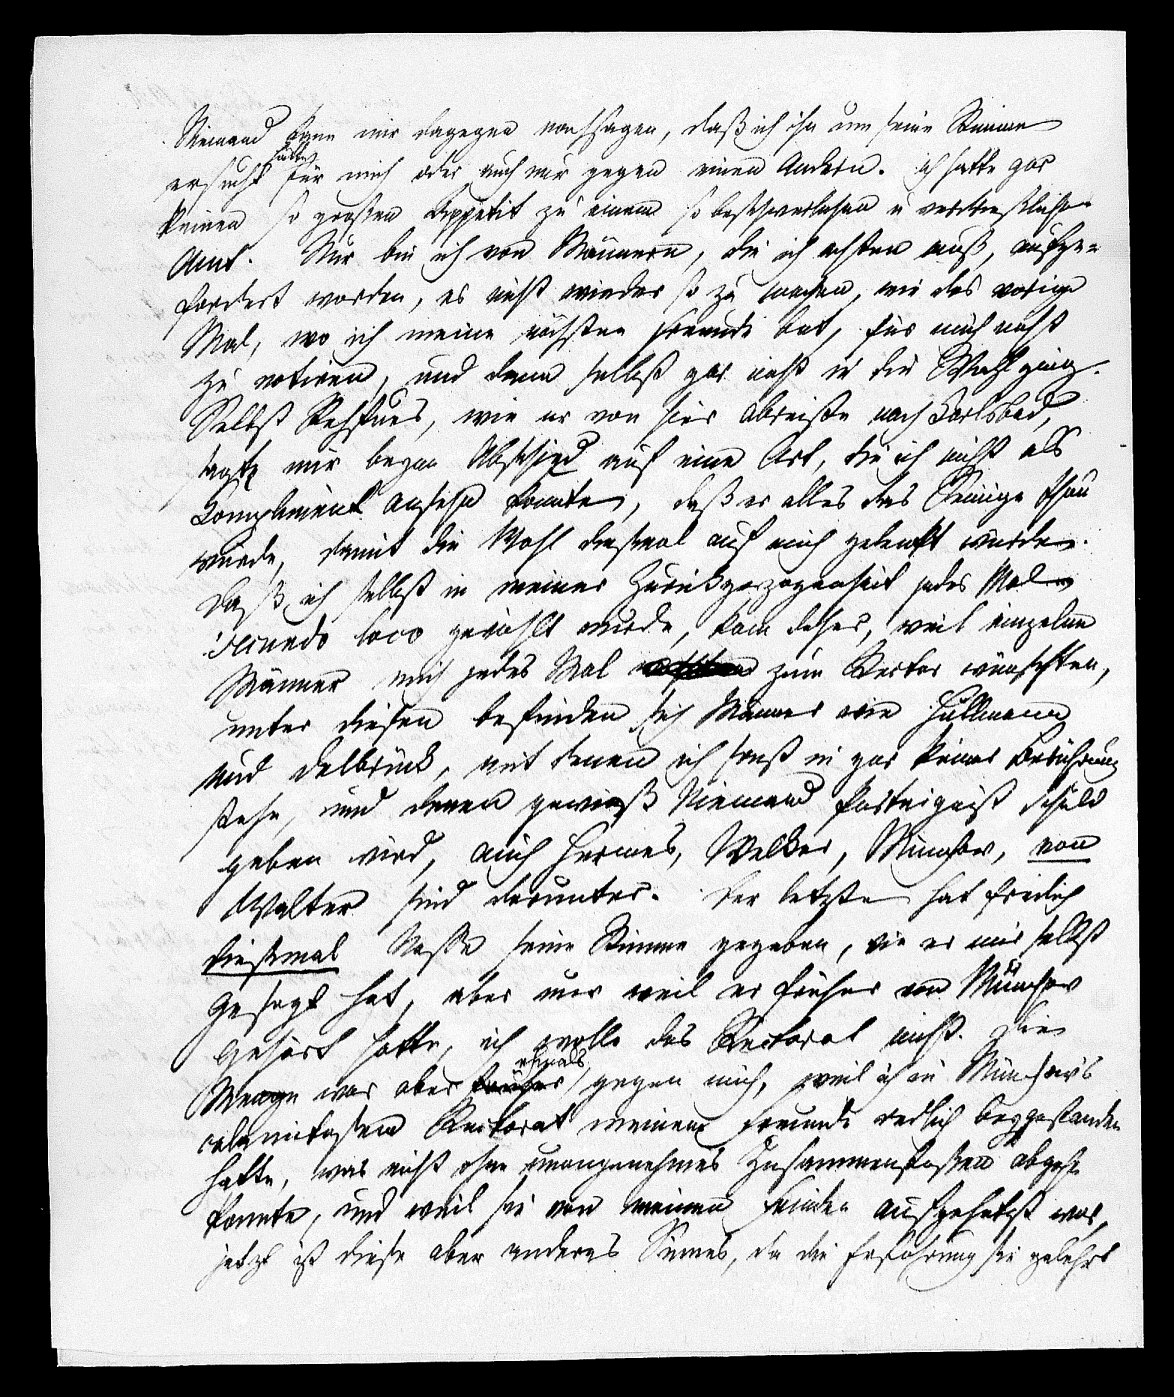 Niemand kann mir dagegen nachsagen, daß ich ihn um seine Stimme
ersucht hätte für mich oder auch nur gegen einen Andern. ich hatte gar
keinen so großen Appetit zu einem so beschwerlichen u verdrießlichen
Amt. Nur bin ich von Männern, die ich achten muß, aufge-
fordert worden, es nicht wieder so zu machen, wie das vorige
Mal, wo ich meine nächsten Freunde bat, für mich nicht
zu votiren, und dann selbst gar nicht in die Wahl ging.
Selbst Rehfues, wie er von hier abreiste nach Karlsbad,
sagte mir beym Abschied auf eine Art, die ich nicht als
Compliment ansehn konnte, daß er alles das Seinige thun
würde, damit die Wahl diesmal auf mich gelenkt würde.
Daß ich selbst in meiner Zurückgezogenheit jedes Mal
secundo loco gewählt wurde, kam daher, weil einzelne
Männer mich jedes Mal zum Rector wünschten,
unter diesen befinden sich Männer wie Hüllmann
und Delbrück, mit denen ich sonst in gar keiner Berührung
stehe, und denen gewiß Niemand Parteigeist schuld
geben wird, auch Hermes, Welker, Münchow, von
Walter sind darunter. Der letzte hat freilich
diesmal Nasse seine Stimme gegeben, wie er mir selbst
gesagt hat, aber nur weil er früher von Münchow
gehört hatte, ich wolle das Rectorat nicht. Die
Menge war aber ehmals gegen mich, weil ich in Münchow's
calamitosem Rectorat meinem Freunde redlich beygestanden
hatte, was nicht ohne unangenehmes Zusammenstoßen abgehn
konnte, und weil sie von meinen Feinden aufgehetzt war,
jetzt ist diese aber anderes Sinnes, da die Erfahrung sie gelehrt